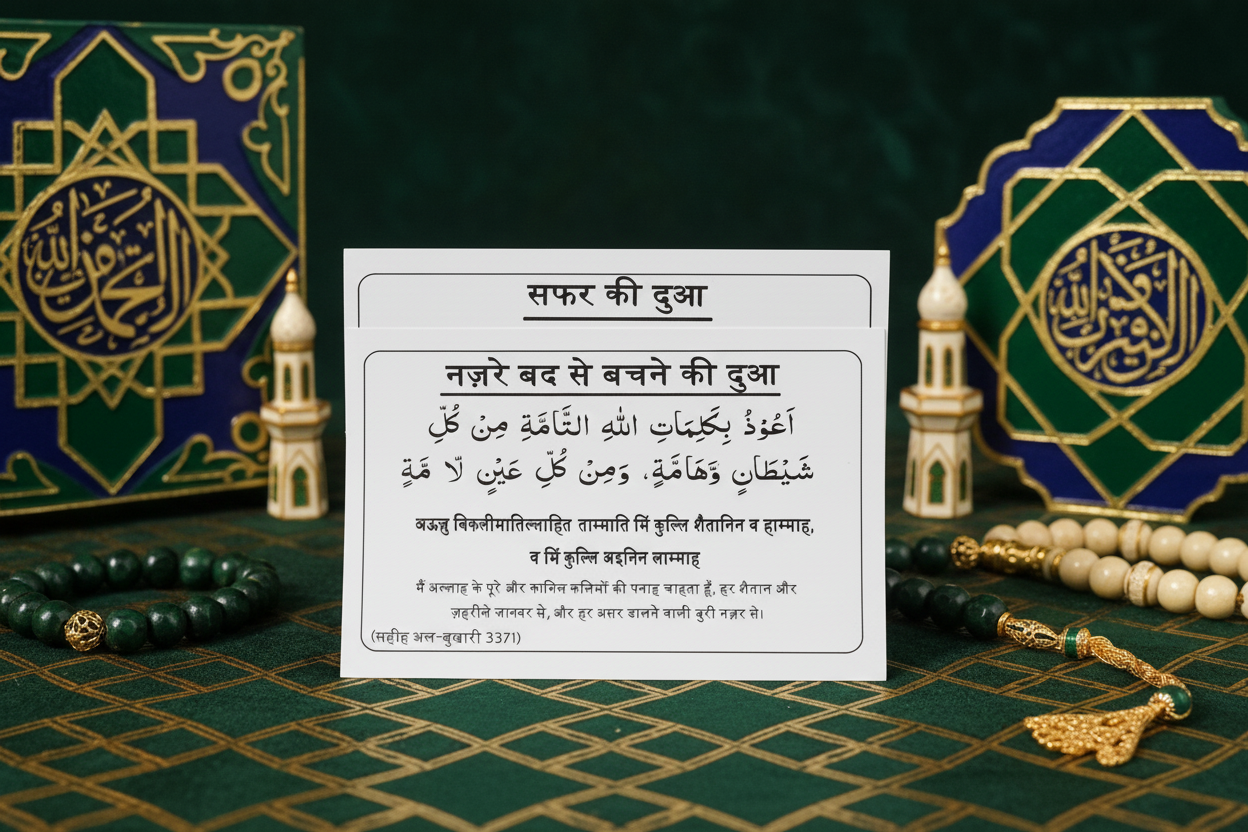 सफर की दुआ
नज़रे बद से बचने की दुआ
اَعُوْذُ بِكَلِمَاتِ اللّٰهِ التَّامَّةِ مِنْ كُلِّ
شَيْطَانٍ وَّهَامَّةٍ، وَمِنْ كُلِّ عَيْنٍ لَّا مَّةٍ
अऊज़ु बिकलीमातिल्लाहित ताम्माति मिं कुल्लि शैतानिन व हाम्माह,
व मिं कुल्लि अइनिन लाम्माह
मैं अल्लाह के पूरे और कामिल कलिमों की पनाह चाहता हूँ, हर शैतान और
ज़हरीले जानवर से, और हर असर डालने वाली बुरी नज़र से।
(सहीह अल-बुखारी 3371)